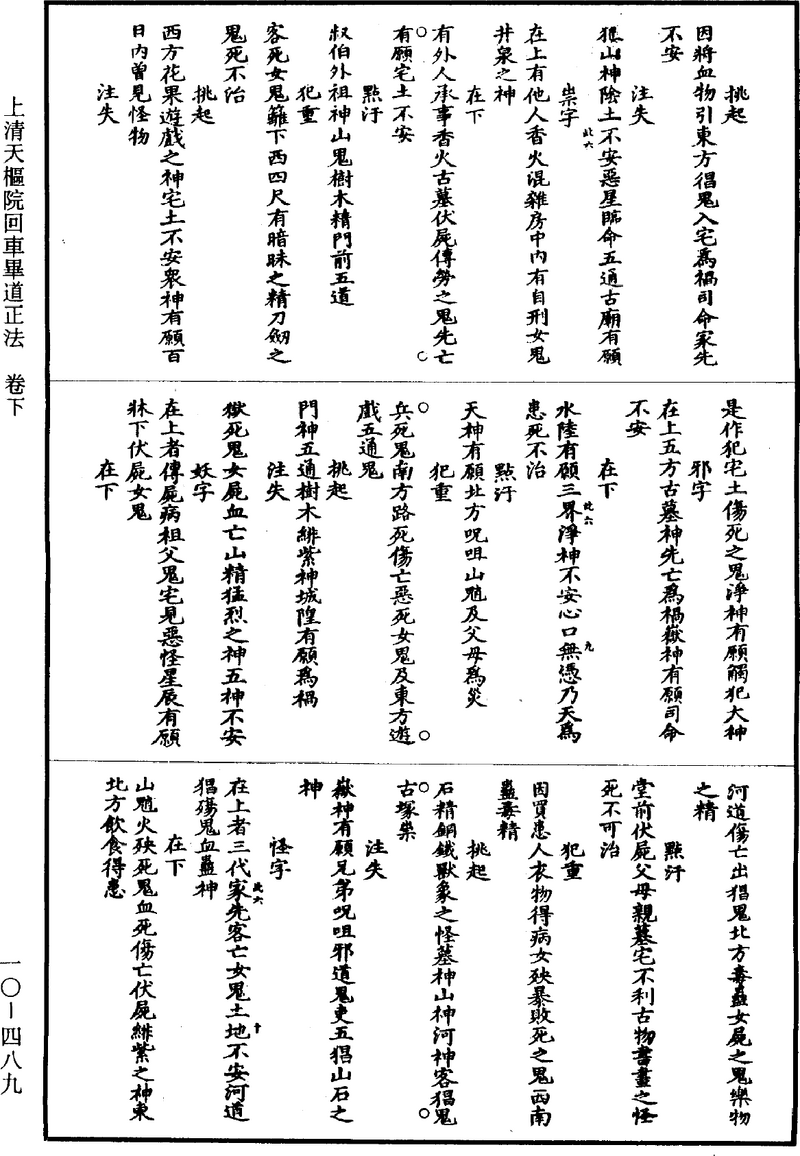 上清天樞院回車畢道正法　卷下
一〇—四八九
挑起
因將血物引東方猖鬼入宅爲禍司命家先
不安
注失
獵山神陰土不安惡星臨命五通古廟有願
祟字
此六
在上有他人香火混雜房中內有自刑女鬼
井泉之神
在下
有外人承事香火古墓伏屍傳勞之鬼先亡
有願宅土不安
點汙
叔伯外祖神山鬼樹木精門前五道
犯重
客死女鬼籬下西四尺有暗昧之精刀劒之
鬼死不治
挑起
西方花果遊戲之神宅土不安衆神有願百
日內曾見怪物
注失
是作犯宅土傷死之鬼淨神有願觸犯大神
邪字
在上五方古墓神先亡爲禍嶽神有願司命
不安
在下
水陸有願三界淨神不安心口無憑乃天爲
此六
九
患死不治
點汙
天神有願北方呪咀山魈及父母爲災
犯重
兵死鬼南方路死傷亡惡死女鬼及東方遊
戲五通鬼
挑起
門神五通樹木緋紫神城隍有願爲禍
注失
獄死鬼女屍血亡山精猛烈之神五神不安
妖字
在上者傳屍病祖父鬼宅見惡怪星辰有願
牀下伏屍女鬼
在下
河道傷亡出猖鬼北方毒蠱女屍之鬼樂物
之精
點汙
堂前伏屍父母親墓宅不利古物書畫之怪
死不可治
犯重
因買患人衣物得病女殃暴敗死之鬼西南
蠱毒精
挑起
石精銅鐵獸象之怪墓神山神河神客猖鬼
古塚祟
注失
嶽神有願兄弟呪咀邪道鬼吏五猖山石之
神
怪字
在上者三代家先客亡女鬼土地不安河道
此六
十
猖殤鬼血蠱神
在下
山魈火殃死鬼血死傷亡伏屍緋紫之神東
北方飲食得患